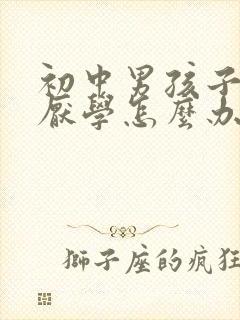 初中男孩子
厭學怎麼办
獅子座的疯狂